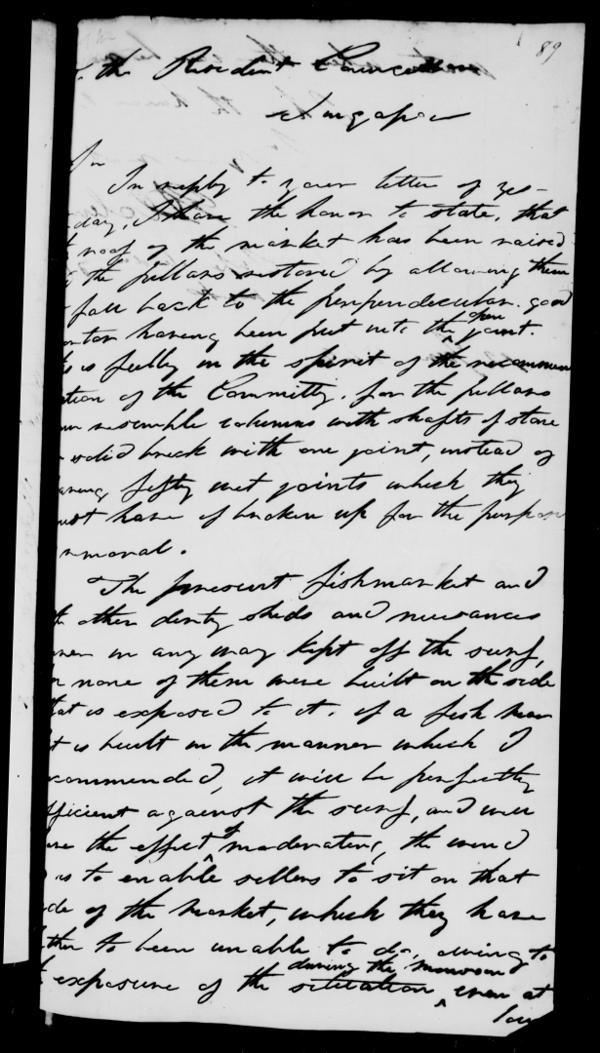 89
the Resident Councillor
Singapore
In reply to your letter of yes-
day, I have the honor to state, that
roof of the market has been raised
the pillars restored by allowing them
fall back to the perpendicular. good
having been put into the open joint.
is fully in the spirit of the recommen
tion of the Committee, for the pillars
resemble columns with shafts of stone
solid brick with one joint, instead of
fifty wet joints which they
ust have if broken up for the purpose
moval.
The present fishmarket and
other dirty sheds and nuisances
in any way kept off the surf,
none of them were built on the side
at is exposed to it. if a fish mar
t is built in the manner which I
commended, it will be perfectly
fficient against the surf, and will
the effect of moderating the wind
as to enable sellers to sit on that
de of the market, which they have
ther to been unable to do, owing to
exposure of the situation during the monsoon, even at
low